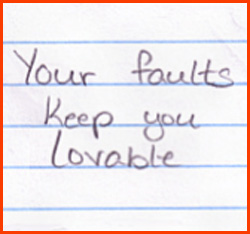 Your faults
Keep you
lovable